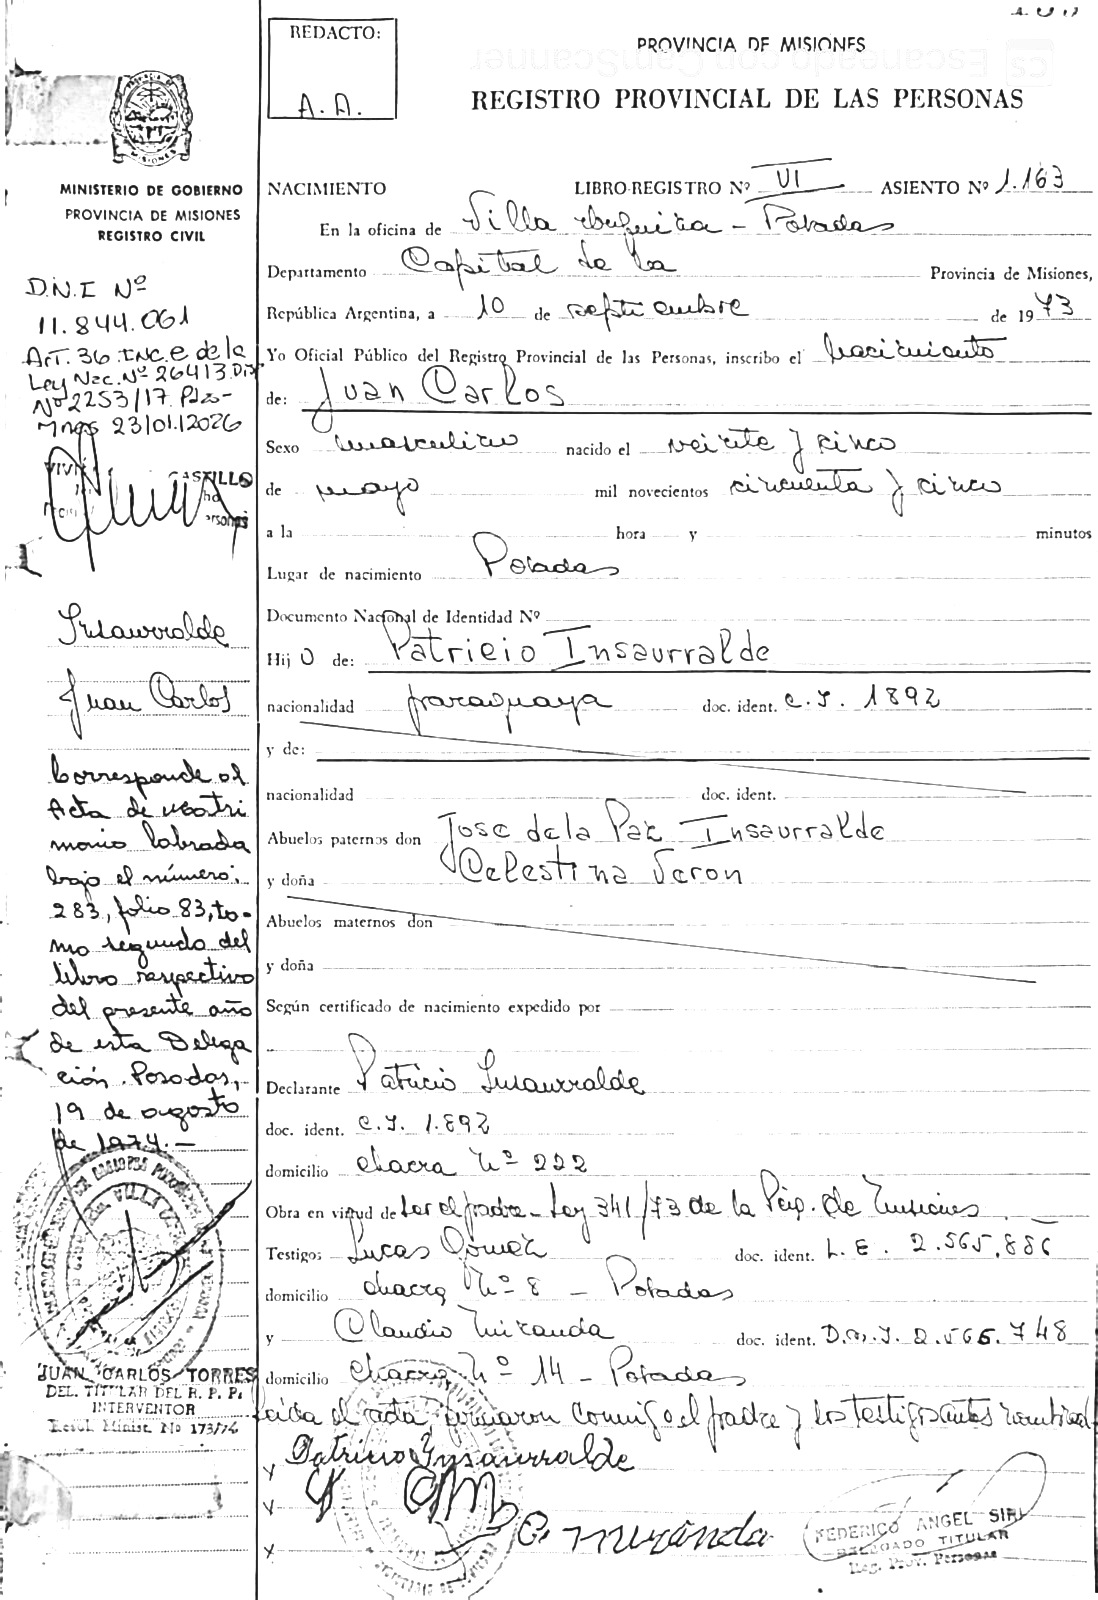 REDACTO:
A. A.
PROVINCIA DE MISIONES
Escaneado con CamScanner
CS
REGISTRO PROVINCIAL DE LAS PERSONAS
PROVINCIA DE MISIONES
MINISTERIO DE GOBIERNO
PROVINCIA DE MISIONES
REGISTRO CIVIL
D.N.I Nº
11.844.061
Art. 36 inc. e de la
Ley Nac. Nº 26413 Dis
Nº 2253/17 Pdas-
Mnes 23/01/2026
CASTILLO
Insaurralde
Juan Carlos
Corresponde al
Acta de matri
monio labrada
bajo el número:
283, folio 83, to-
mo segundo del
libro respectivo
del presente año
de esta Delega
ción. Posadas,
19 de agosto
de 1974.-
JUAN CARLOS TORRES
DEL. TITULAR DEL R. P. P.
INTERVENTOR
Resol. Minist. Nº 173/74
NACIMIENTO LIBRO-REGISTRO Nº VI ASIENTO Nº 1.163
En la oficina de Villa Urquiza - Posadas
Departamento Capital de la Provincia de Misiones,
República Argentina, a 10 de septiembre de 1973
Yo Oficial Público del Registro Provincial de las Personas, inscribo el nacimiento
de: Juan Carlos
Sexo masculino nacido el veinte y cinco
de mayo mil novecientos cincuenta y cinco
a la hora y minutos
Lugar de nacimiento Posadas
Documento Nacional de Identidad Nº
Hij O de: Patricio Insaurralde
nacionalidad paraguaya doc. ident. C.I. 1892
y de:
nacionalidad doc. ident.
Abuelos paternos don Jose de la Paz Insaurralde
y doña Celestina Veron
Abuelos maternos don
y doña
Según certificado de nacimiento expedido por
Declarante Patricio Insaurralde
doc. ident. C.I. 1.892
domicilio chacra Nº 222
Obra en virtud de ser el padre - Ley 341/73 de la Pcia. de Misiones
Testigos Lucas Gómez doc. ident. L. E. 2.565.886
domicilio chacra Nº 8 - Posadas
y Claudio Miranda doc. ident. D.N.I. 2.566.748
domicilio chacra Nº 14 - Posadas
leida el acta firmaron conmigo el padre y los testigos antes nombrad
Patricio Ynsaurralde
C. Miranda
FEDERICO ANGEL SIRI
DELEGADO TITULAR
Reg. Prov. Personas